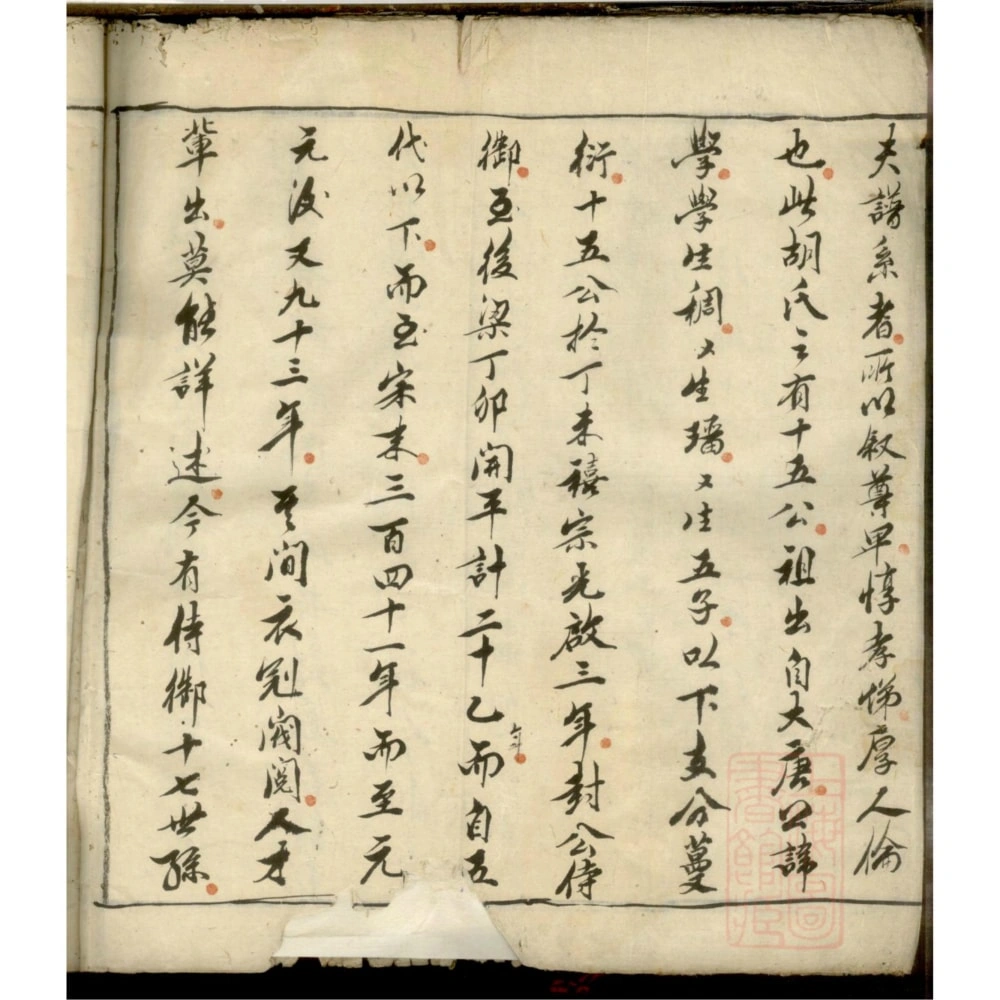 夫譜系者所以叙尊卑惇孝悌厚人倫
也此胡氏之有十五公祖出自大唐公諱
學學生稠々生璠々生五子以下支分蔓
衍十五公於丁未禧宗光啟三年封公侍
御至後梁丁卯開平計二十乙年而自五
代以下而至宋末三百四十一年而至元
元後又九十三年其间衣冠閥閲人才
輩出莫能詳述今有侍御十七世孫
上海圖書館藏